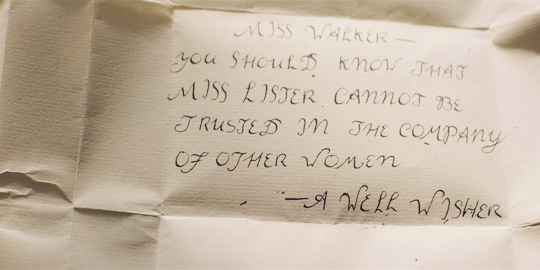 MISS WALKER —
YOU SHOULD KNOW THAT
MISS LISTER CANNOT BE
TRUSTED IN THE COMPANY
OF OTHER WOMEN
—A WELL WISHER